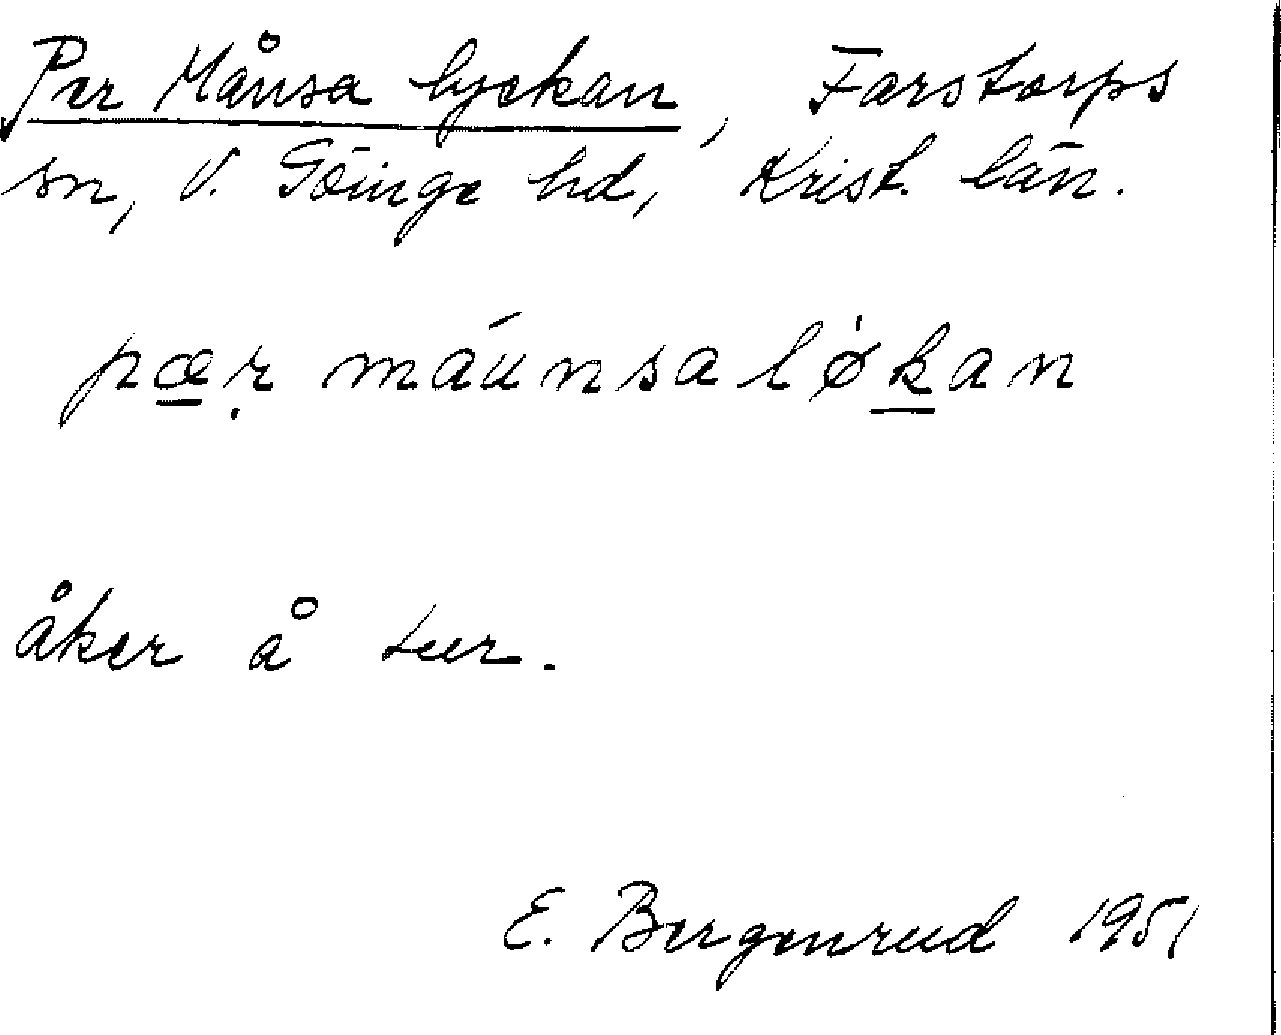 Per Månsa lyckan, Farstorps
sn, V. Göinge hd, Krist. län.
pæṛ máunsaløkan
åker å tur.
E. Bergenrud 1951